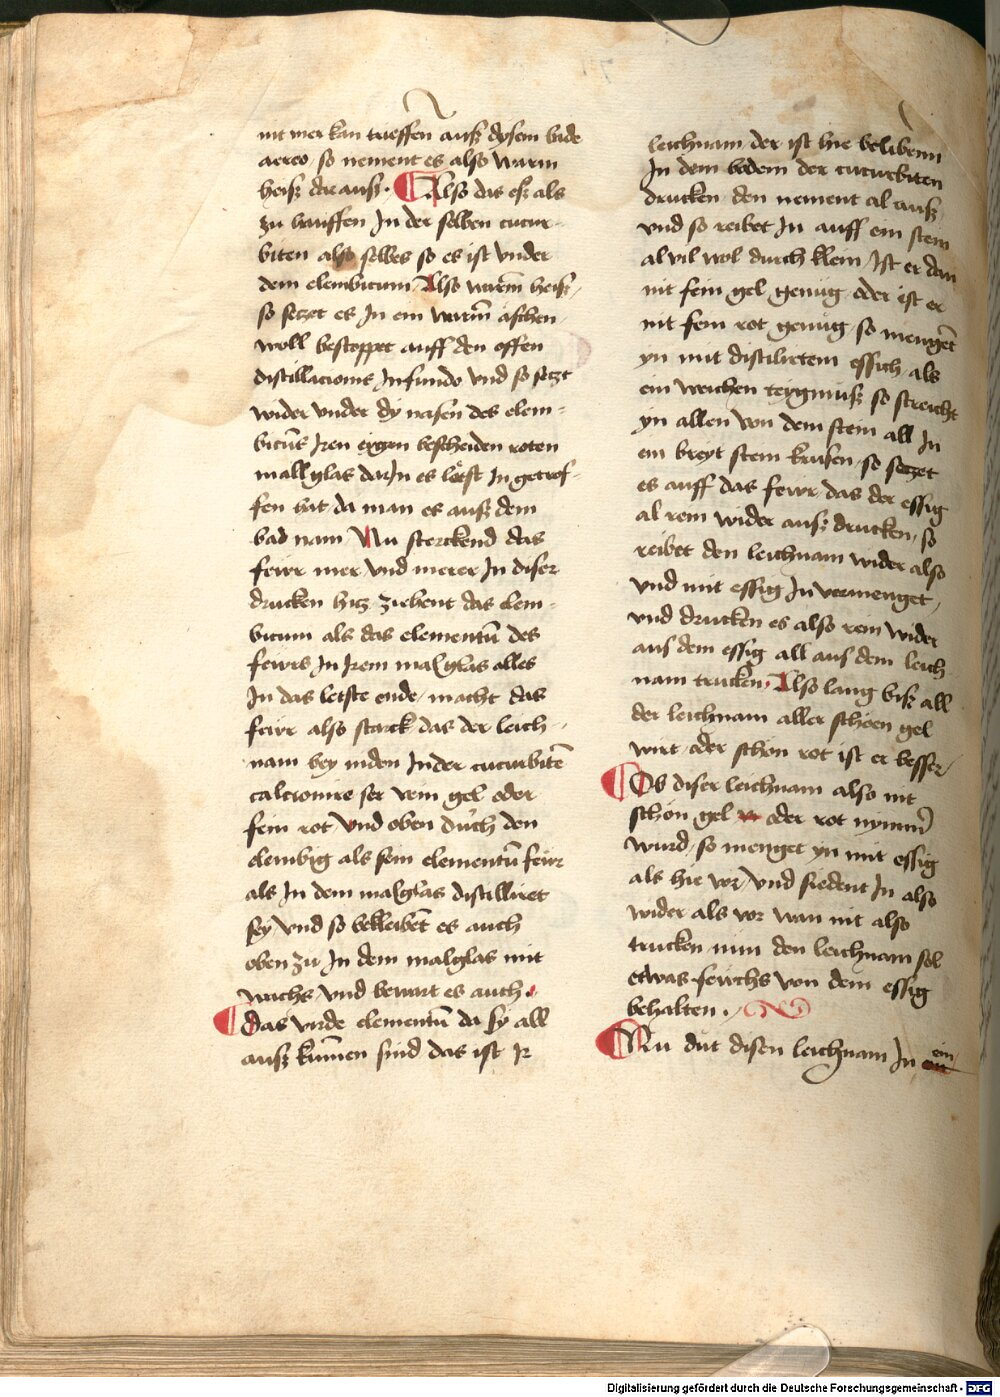 nit mer kan trieffen auß dysem bade
aereo · so nement es also warm
heiß dar auß · Also das eß als
zu hauffen In der selben cucur-
biten also selbes so es ist vnder
dem elembicum Also warm heiß
so setzet es In ein warm aschen
woll bestoppet auff den offen
distillacionis Infundo vnd so setzt
wider vnder dy nasen des elem-
bicus Iren eigen bescheiden roten
mallglas darIn es In getrof-
fen hat da man es auß dem
bad nam Nu sterckend das
feirr mer vnd merer In diser
drucken hitz ziehent das elem-
bicum als das elementū des
feirrs In Irem malglas alles
In das letste ende · macht das
feirr also starck das der leich-
nam bey niden Inder cucurbitē
calcionire ser gel oder
rot vnd oben durch den
elembig als sein elementū feirr
als In dem malglas distilliret
sey vnd so bekleibet es auch
oben zu In dem malglas mit
wachs vnd bewart es auch ·
das virde elementū da sy all
auß kumen sind das ist Ir
leichnam der ist hie belibenn
In dem bodem der cucurbiten
drucken den nement al auß
vnd so reibet In auff ein stein
al vil wol durch klein Ist er dan
nit fein gel genug oder ist er
nit fein rot genug so menget
yn mit distilirtem essich als
ein weichen teygmuß so streicht
yn allen von dem stein all In
ein breyt stein krusen so setzet
es auff das feirr das der essig
al rein wider auß drucken so
reibet den leichnam wider also
vnd mit essig In vermenget
vnd drucken es also rein wider
aus dem essig all aus dem leich
nam trucken · Also lang biß all
der leichnam aller schoen gel
wirt oder schon rot ist er besser
Ob diser leichnam also nit
schon gel oder rot nymm
wurd so menget yn mit essig
als hie vor vnd siedent In also
wider als vor wan nit also
trucken nim den leichnam sol
etwas feuchs von dem essig
behalten ·
Nu dut disen leichnam In ein
Digitalisierung gefördert durch die Deutsche Forschungsgemeinschaft - DFG